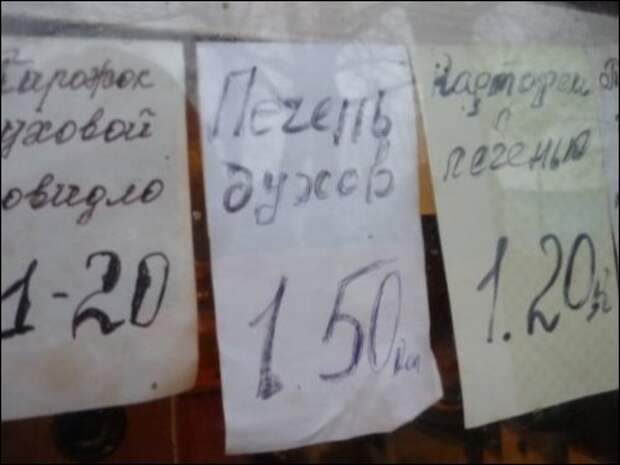 Пирожок
уховой
овидло
1-20
Печень
духов
1.50
Картофель
печенью
1.20